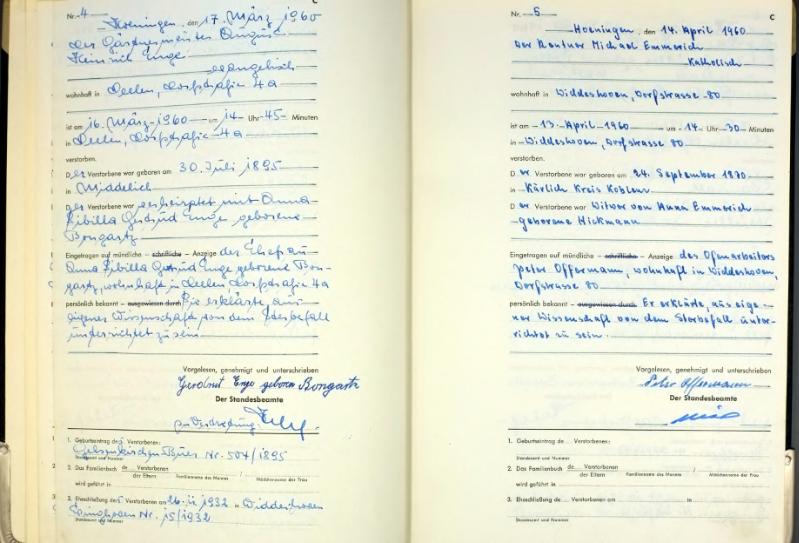 C
Nr. 4
Hoeningen, den 17. März 1960
Der Gärtnermeister August
Heinrich Enge
evangelisch
wohnhaft in Deelen, Dorfstraße 4a
ist am 16. März 1960 um 14 Uhr 45 Minuten
in Deelen, Dorfstraße 4a
verstorben.
Der Verstorbene war geboren am 30. Juli 1895
in Middelich
Der Verstorbene war verheiratet mit Anna
Sibilla Gertrud Enge geborene
Bongartz
Eingetragen auf mündliche – schriftliche – Anzeige der Ehefrau
Anna Sibilla Gertrud Enge geborene Bon-
gartz, wohnhaft in Deelen, Dorfstraße 4a
persönlich bekannt – ausgewiesen durch Sie erklärte, aus
eigener Wissenschaft von dem Sterbefall
unterrichtet zu sein
Vorgelesen, genehmigt und unterschrieben
Enge geborene Bongartz
Der Standesbeamte
In Vertretung
1. Geburtseintrag des Verstorbenen:
Gelsenkirchen Buer Nr. 504/1895
Standesamt und Nummer
2. Das Familienbuch de Verstorbenen /
der Eltern Familienname des Mannes Mädchenname der Frau
wird geführt in
3. Eheschließung des Verstorbenen am 26.11.1932 in Widdeshoven
Nr. 15/1932
Standesamt und Nummer
C
Nr. 5
Hoeningen, den 14. April 1960
Der Rentner Michael Emmerich
Katholisch
wohnhaft in Widdeshoven, Dorfstrasse 80
ist am 13. April 1960 um 14 Uhr 30 Minuten
in Widdeshoven, Dorfstrasse 80
verstorben.
Der Verstorbene war geboren am 24. September 1870
in Kärlich Kreis Koblenz
Der Verstorbene war Witwer von Anna Emmerich
geborene Hickmann
Eingetragen auf mündliche – schriftliche – Anzeige des Ofenarbeiters
Peter Offermann, wohnhaft in Widdeshoven,
Dorfstrasse 80
persönlich bekannt – ausgewiesen durch Er erklärte, aus eige-
ner Wissenschaft von dem Sterbefall unter-
richtet zu sein.
Vorgelesen, genehmigt und unterschrieben
Peter Offermann
Der Standesbeamte
1. Geburtseintrag de Verstorbenen:
Standesamt und Nummer
2. Das Familienbuch de Verstorbenen /
der Eltern Familienname des Mannes Mädchenname der Frau
wird geführt in
3. Eheschließung de Verstorbenen am in
Standesamt und Nummer